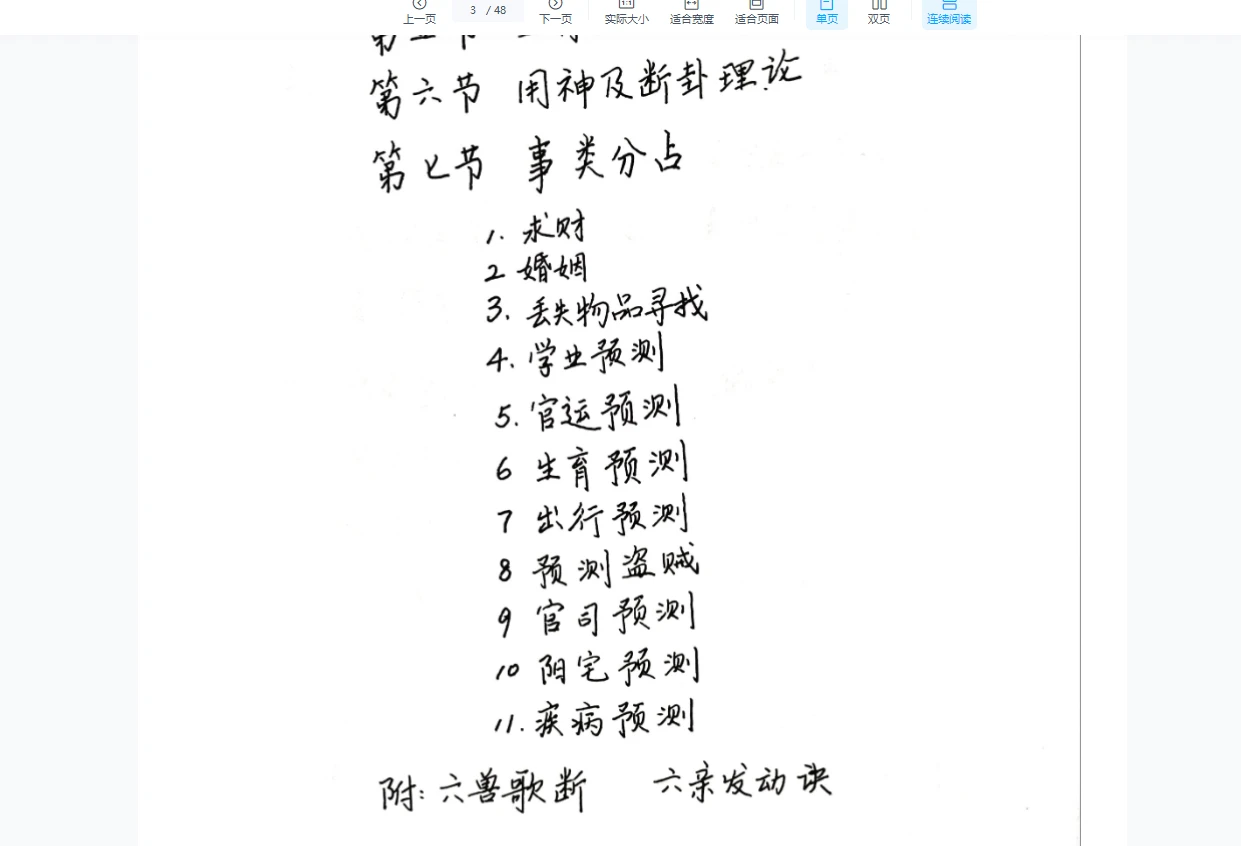 上一页 3 / 48 下一页 实际大小 适合宽度 适合页面 单页 双页 连续阅读
第六节 用神及断卦理论
第七节 事类分占
1. 求财
2 婚姻
3. 丢失物品寻找
4. 学业预测
5. 官运预测
6 生育预测
7 出行预测
8 预测盗贼
9 官司预测
10 阳宅预测
11. 疾病预测
附: 六兽歌断 六亲发动诀